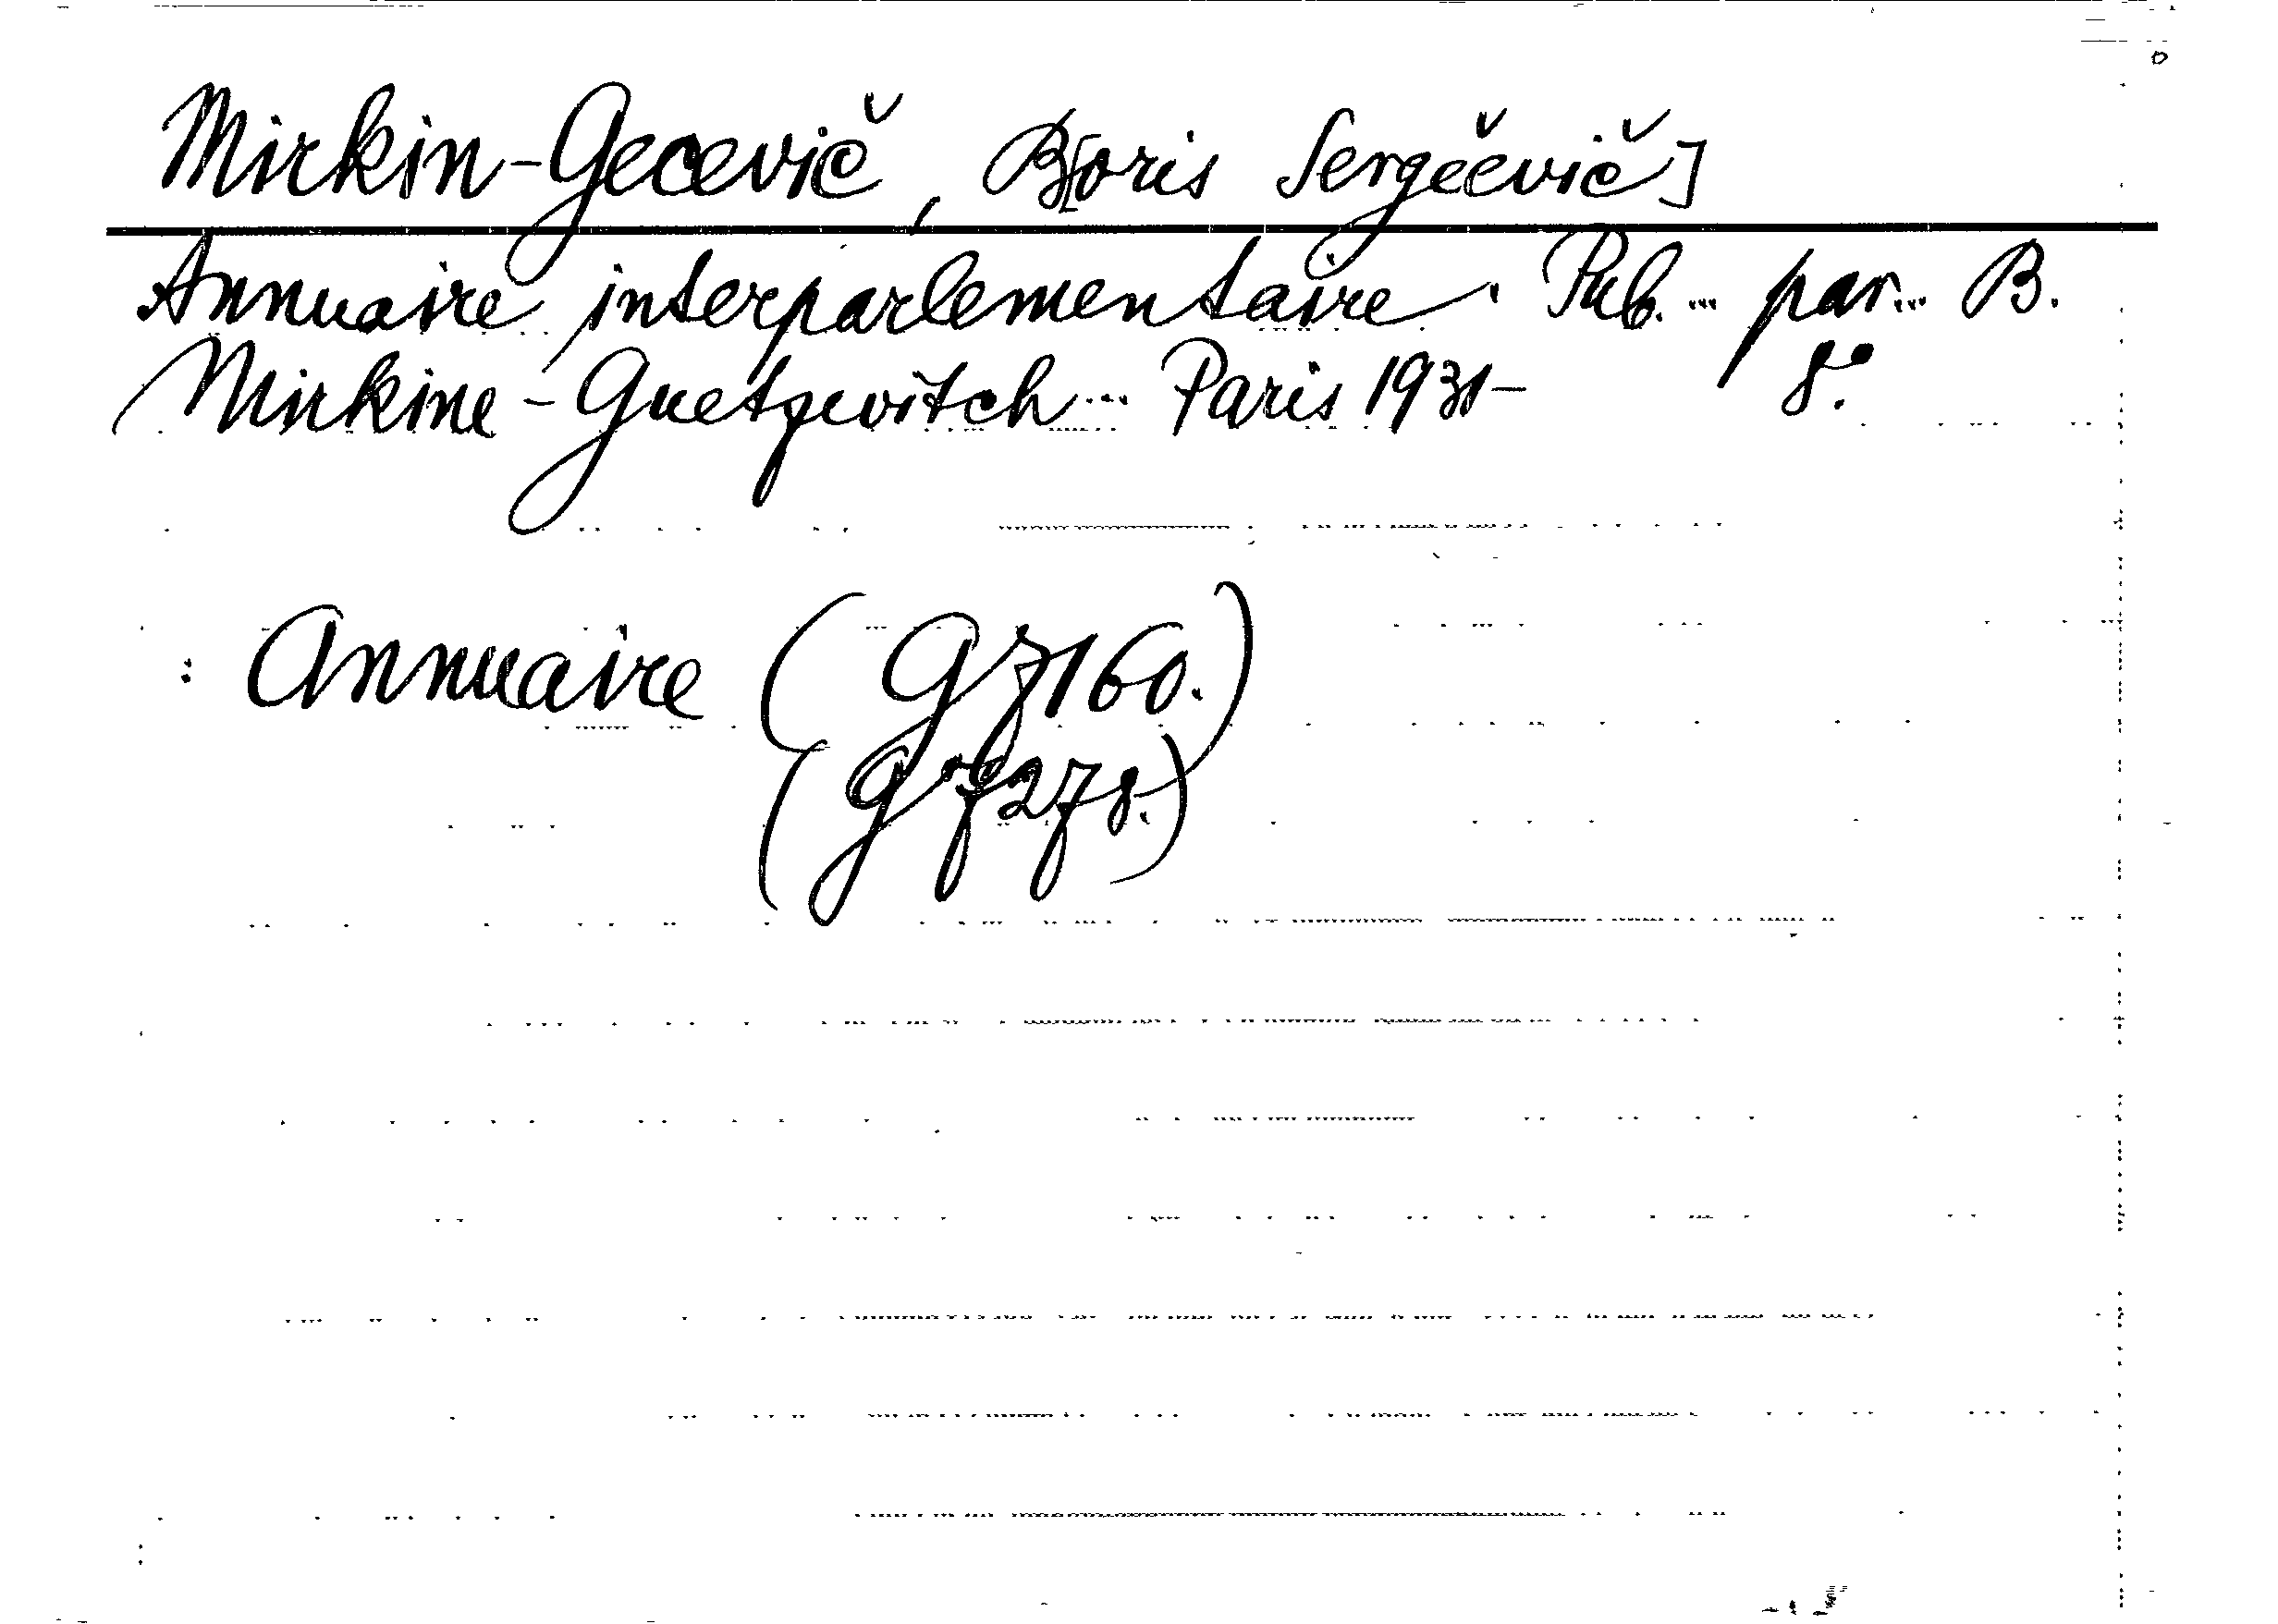 Mirkin-Gecevič, B[oris Sergěevič]
Annuaire interparlementaire. Pub... par... B.
Mirkine-Guetzevitch... Paris 1931- 8°.
: Annuaire (G 7160.)
(G 7278.)